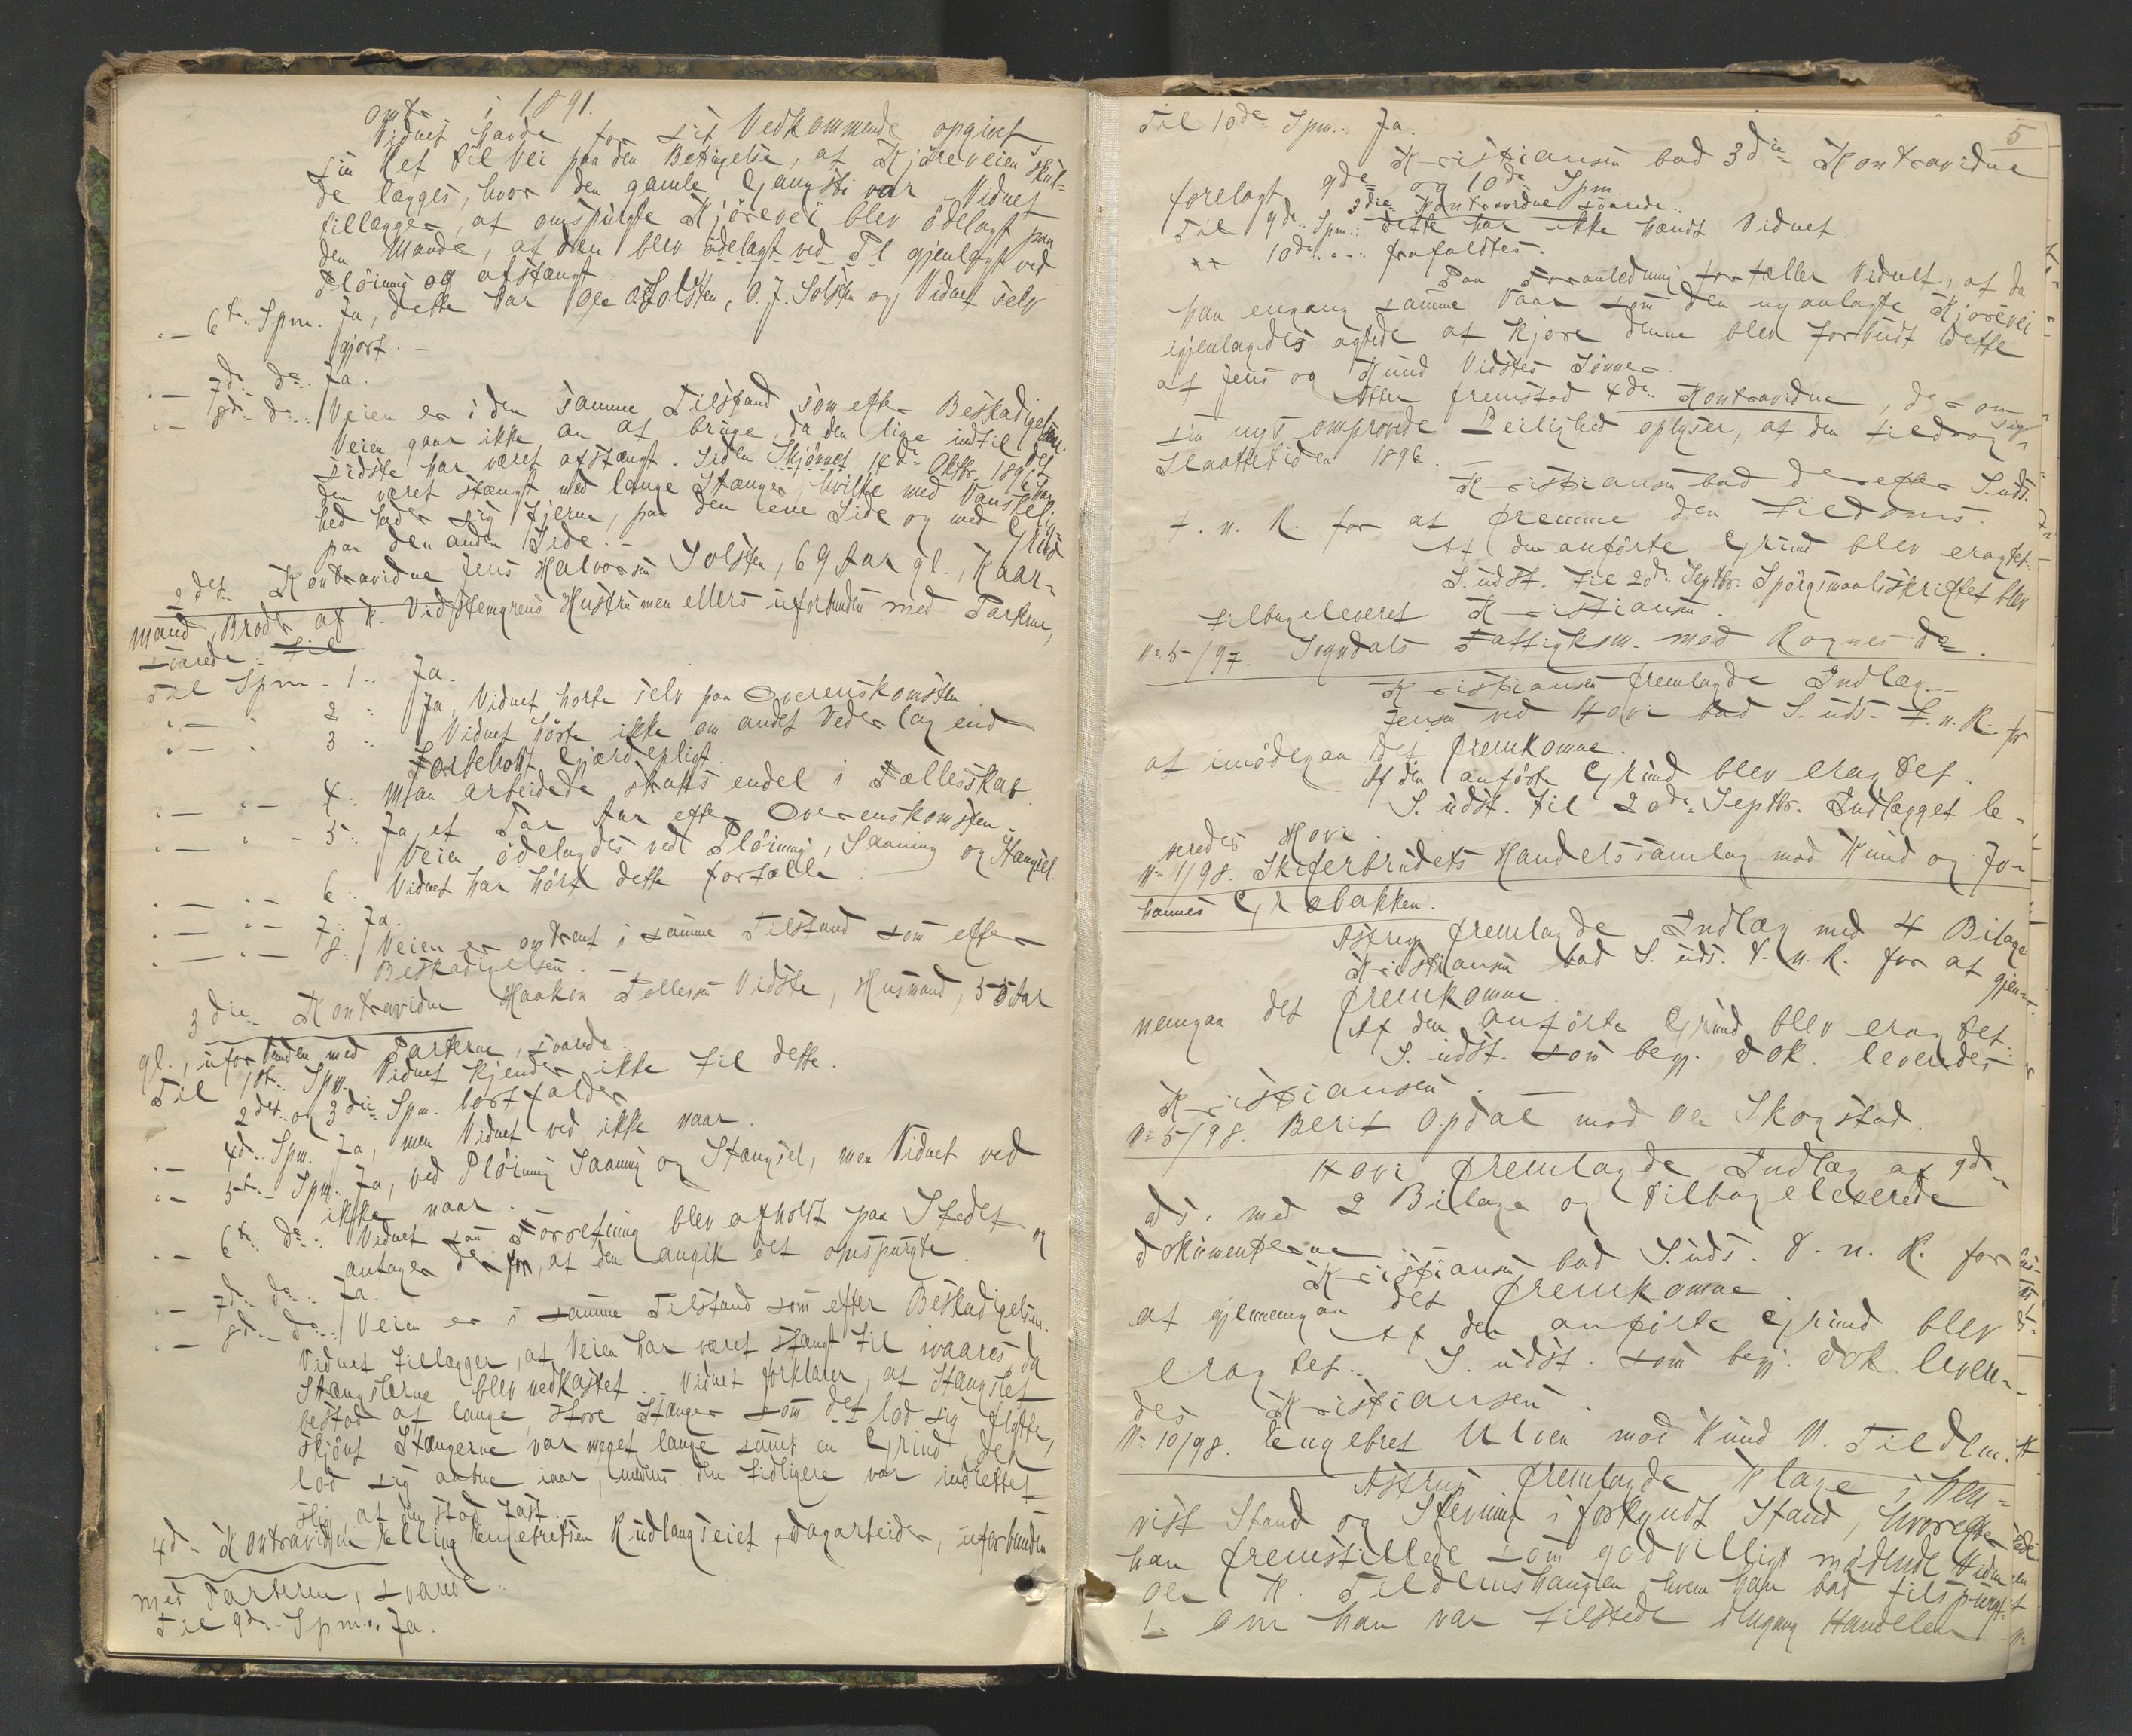 omt. i 1891.
Vidnet havde for sit Vedkommende opgivet
sin Ret til Vei paa den Betingelse, at Kjøreveien skul-
de lægges, hvor den gamle Gangsti var. Vidnet
tillægger, at omspurgte Kjørevei blev ødelagt paa
den Maade, at den blev ødelagt ved Pl gjenlagt ved
Pløining og afstængt.
·— 6te Spm. Ja, dette har Ole O. Solsten, O. J. Solsten og Vidnet selv
gjort. —
·— 7de do: Ja.
·— 8de do: Veien er i den samme Tilstand som efter Beskadigelsen.
Veien gaar ikke an at bruge, da den lige indtil det
sidste har været afstængt. Siden Skjønnet 14de Oktbr. 1896 har
den været stængt med lange Stænger, hvilke med Vanskelig-
hed lader sig fjerne, paa den ene Side og med Grind
paa den anden Side. —
2det Kontravidne Jens Halvorsen Solsten, 69 Aar gl., Kaar-
mand, Broder af K. Vidstengrens Hustru men ellers uforbunden med Parterne,
svarede: til
Til Spm. 1: Ja.
·— · 2: Ja, Vidnet hørte selv paa Overenskomsten
·— · 3: Vidnet hørte ikke om andet Vederlag end
Forbeholdt Gjærdepligt.
·— ·— 4: Man arbeidede straks endel i Fællesskab
·— ·— 5: Ja, et Par Aar efter Overenskomsten
Veien ødelagdes ved Pløining, Saaning og Stængsel.
·— ·— 6: Vidnet har hørt dette fortælle.
·— ·— 7: Ja.
·— ·— 8: Veien er omtrent i samme Tilstand som efter
Beskadigelsen. —
3die Kontravidne Haakon Tollefsen Vidste, Husmand, 55 Aar
gl., uforbunden med Parterne, svarede:
Til 1ste Spm. Vidnet kjender ikke til dette.
2det og 3die Spm. bortfalder
·— 4de Spm. Ja, men Vidnet ved ikke naar.
·— 5te Spm. Ja, ved Pløining Saaning og Stængsel, men Vidnet ved
ikke naar.
·— 6te do: Vidnet saa Forretning blev afholdt paa Stedet og
antager derfor, at den angik det omspurgte.
·— 7de do: Ja.
·— 8de do: Veien er i samme Tilstand som efter Beskadigelsen.
Vidnet tillægger, at Veien har været stængt til ivaares, da
Stængslerne blev nedkastet. Vidnet forklarer, at Stængslet
bestod af lange, store Stænger som det lod sig flytte,
skjønt Stængerne var meget lange samt en Grind, der
lod sig aabne iaar, medens den tidligere var indrettet
slig, at den stod fast.
4de Kontravidne Elling Engebretsen Rudlangseiet, Dagarbeider, uforbunden
med Parterne, svarede:
Til 9de Spm. Ja.
5
Til 10de Spm.: Ja.
Kristiansen bad 3die Kontravidne
forelagt 9de og 10de Spm.
3die Kontravidne svarede:
Til 9de Spm.: Dette har ikke hændt Vidnet.
" 10de " : frafaldtes.
Paa Foranledning fortæller Vidnet, at da
han engang samme Vaar som den nyanlagte Kjørevei
igjenlagdes agtede at kjøre denne blev forbudt dette
af Jens og Knud Vidstes Sønner.
Atter fremstod 4de Kontravidne, der om
sin nys omprovede Leilighed oplyser, at den tildrog sig
Slaattetiden 1896. —
Kristiansen bad derefter S. uds.
t. n. R. for at fremme den til Doms.
Af den anførte Grund blev eragtet:
S. udst. til 20de Septbr. Spørgsmaalsskriftet blev
tilbageleveret Kristiansen.
No 5/97. Sogndals Fattigkom. mod Ragnes do.
Kristiansen fremlagde Indlæg.
Jensen ved Hovi bad S. uds. t. n. R. for
at imødegaa det fremkomne.
Af den anførte Grund blev eragtet:
S. udst. til 20de Septbr. Indlægget le-
veredes Hovi.
No 1/98. Skiferbrudets Handelssamlag mod Knud og Jo-
hannes Græbakken.
Astrup fremlagde Indlæg med 4 Bilage
Kristiansen bad S. uds. t. n. R. for at gjen-
nemgaa det fremkomne.
Af den anførte Grund blev eragtet:
S. udst. som begj. Dok. leveredes
Kristiansen. —
No 5/98. Berit Opdal mod Ole Skogstad.
Hovi fremlagde Indlæg af 9de
ds. med 2 Bilage og tilbageleverede
Dokumenterne
Kristiansen bad S. uds. t. n. R. for
at gjennemgaa det fremkomne.
Af den anførte Grund blev
eragtet: S. udst. som begj. Dok. levere-
des Kristiansen.
No 10/98. Engebret Ulven mod Knud N. Tildlm.
Astrup fremlagde Klage i hen-
vist Stand og Stevning i forkyndt Stand, hvorefter
han fremstillede som godvilligt mødende Vidne
Ole K. Tildemshaugen hvem han bad tilspurgt:
1. Om han var tilstede dengang Handelen